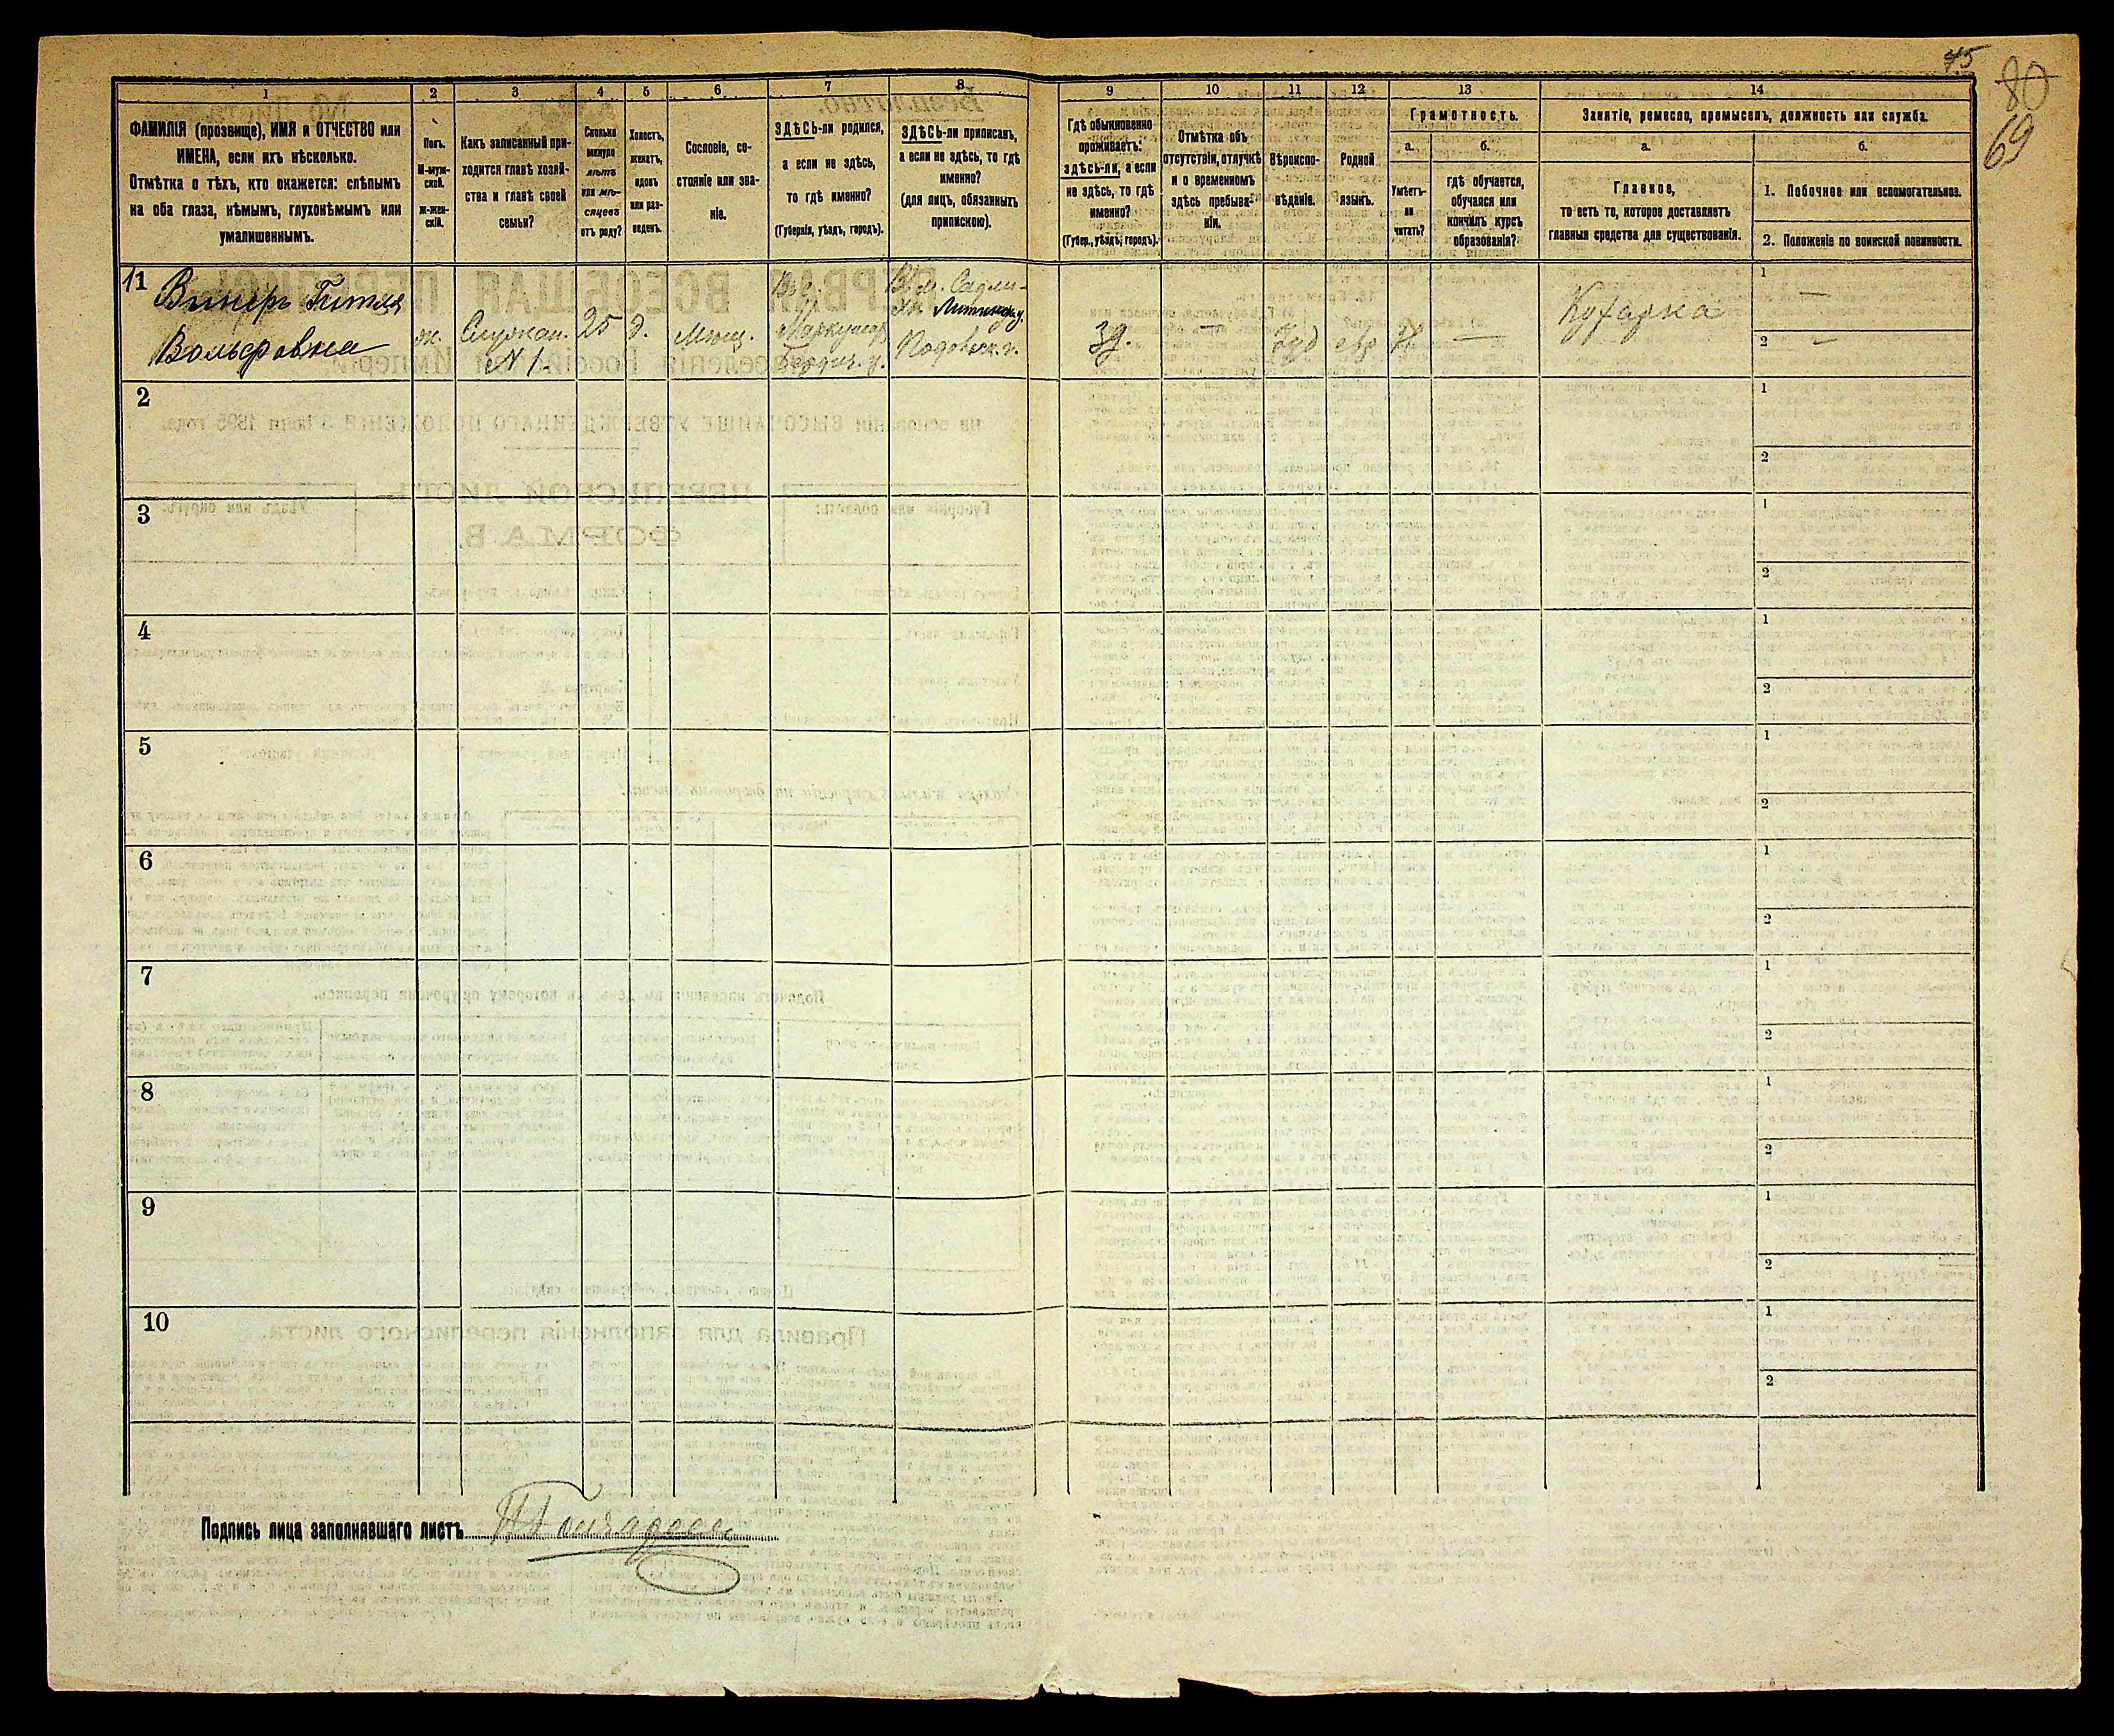 75
80
69
1
2
3
4
5
6
7
8
9
10
11
12
13
14
ФАМИЛІЯ (прозвище), ИМЯ и ОТЧЕСТВО или
ИМЕНА, если ихъ нѣсколько.
Отмѣтка о тѣхъ, кто окажется: слѣпымъ
на оба глаза, нѣмымъ, глухонѣмымъ или
умалишеннымъ.
Полъ.
М-муж-
ской.
ж-жен-
скій.
Какъ записанный при-
ходится главѣ хозяй-
ства и главѣ своей
семьи?
Сколько
минуло
лѣтъ
или мѣ-
сяцевъ
отъ роду?
Холостъ,
женатъ,
вдовъ
или раз-
веденъ.
Сословіе, со-
стояніе или зва-
ніе.
ЗДѢСЬ-ли родился,
а если не здѣсь,
то гдѣ именно?
(Губернія, уѣздъ, городъ).
ЗДѢСЬ-ли приписанъ,
а если не здѣсь, то гдѣ
именно?
(для лицъ, обязанныхъ
припискою).
Гдѣ обыкновенно
проживаетъ:
здѣсь-ли, а если
не здѣсь, то гдѣ
именно?
(Губер., уѣздъ, городъ).
Отмѣтка объ
отсутствіи, отлучкѣ
и о временномъ
здѣсь пребыва-
ніи.
Вѣроиспо-
вѣданіе.
Родной
языкъ.
Грамотность.
а.
Умѣетъ-
ли
читать?
б.
гдѣ обучается,
обучался или
кончилъ курсъ
образованія?
Занятіе, ремесло, промыселъ, должность или служба.
а.
Главное,
то есть то, которое доставляетъ
главныя средства для существованія.
б.
1. Побочное или вспомогательное.
2. Положеніе по воинской повинности.
11
Винеръ Гитля
Вольфовна
ж.
Служан.
№ 1.
25
д.
Мѣщ.
Бердич. у.
Подольск. г.
Зд.
—
Іуд
евр
—
Кухарка
1
—
2
—
2
1
2
3
1
2
4
1
2
5
1
2
6
1
2
7
1
2
8
1
2
9
1
2
10
1
2
Подпись лица заполнявшаго листъ